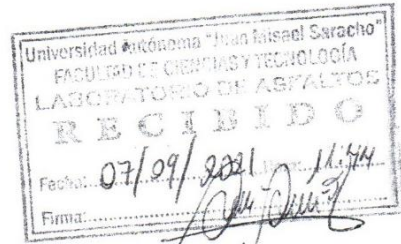 Universidad Autónoma "Juan Misael Saracho"
FACULTAD DE CIENCIAS Y TECNOLOGÍA
LABORATORIO DE ASFALTOS
RECIBIDO
Fecha: 07/09/2021 Hora: 11:44
Firma: